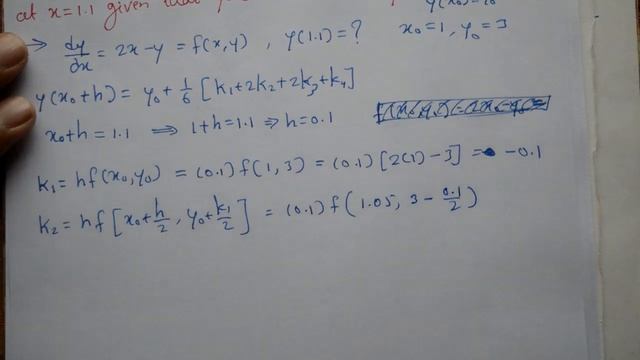 at x=1.1 given that
y(x₀)=
⇒ dy/dx = 2x-y = f(x,y) , y(1.1)=?
x₀=1, y₀=3
y(x₀+h) = y₀ + 1/6 [k₁+2k₂+2k₃+k₄]
x₀+h=1.1 ⇒ 1+h=1.1 ⇒ h=0.1
k₁=hf(x₀,y₀) = (0.1)f(1,3) = (0.1)[2(1)-3] = -0.1
k₂=hf[x₀+h/2, y₀+k₁/2] = (0.1)f(1.05, 3-0.1/2)